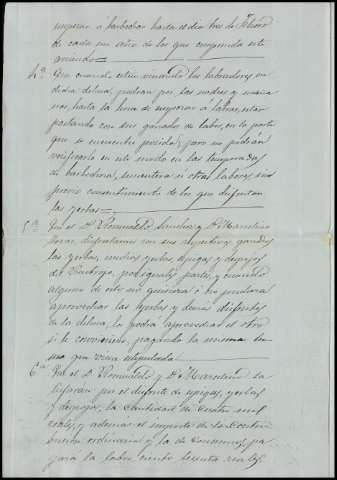 empezar a barbechar hasta el dia tres de
de cada un año de los que comprenda este
arriendo
4ª Que cuando esten los labradores en
dicha dehesa, podran por las noches y maña
nas, hasta la hora de empezar a labrar, estar
pastando con sus ganados de labor, en la parte
que se encuentre; pero no podrán
verificarlo en este modo en las temporadas
de barbechera, sementera u otras labores sin
previo consentimiento de los que disfrutan
las yerbas
5ª Que el Dn Romualdo Sanchez y Dn Marcelino
disfrutaran con sus respectivos ganados
las yerbas, espigas y despojos
del por iguales partes, y cuando
alguno de estos no quisiera o no pudiera
aprovechar las yerbas y demás disfrutes
de la dehesa, lo podrá aprovechar el otro
si le conviniere, pagando la misma
que viene estipulada
6ª Que el Dn Romualdo y Dn Marcelino sa
tisfaran por el disfrute de espigas, yerbas
y despojos, la cantidad de cuatro mil
reales, y ademas el importe de la contri
bucion ordinaria y la de consumos, pa
gará la labor ciento sesenta reales